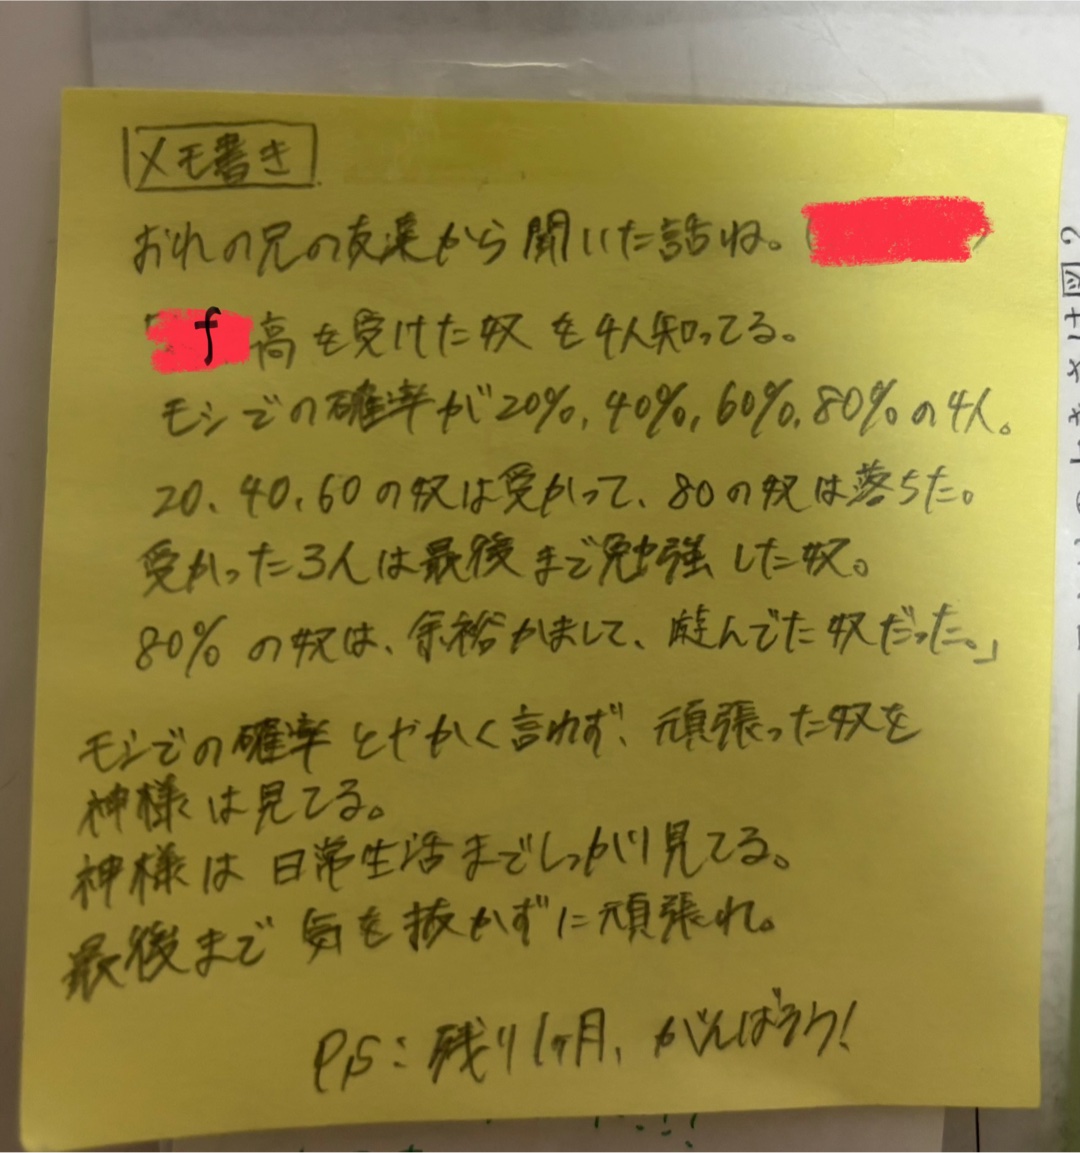 メモ書き
おれの兄の友達から聞いた話ね。
「f高を受けた奴を4人知ってる。
モシでの確率が20%, 40%, 60%, 80%の4人。
20、40、60の奴は受かって、80の奴は落ちた。
受かった3人は最後まで勉強した奴。
80%の奴は、余裕かまして、遊んでた奴だった。」
モシでの確率とやかく言わず、頑張った奴を
神様は見てる。
神様は日常生活までしっかり見てる。
最後まで気を抜かずに頑張れ。
P.S: 残り1ヶ月、がんばろう!